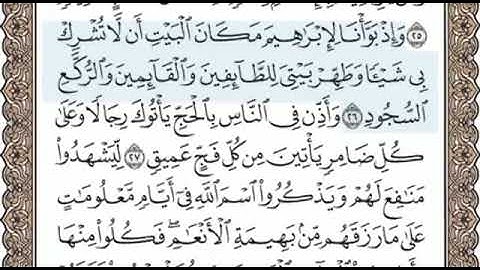 ٢٥ وَإِذْ بَوَّأْنَا لِإِبْرَٰهِيمَ مَكَانَ ٱلْبَيْتِ أَن لَّا تُشْرِكْ
بِى شَيْـًٔا وَطَهِّرْ بَيْتِىَ لِلطَّآئِفِينَ وَٱلْقَآئِمِينَ وَٱلرُّكَّعِ
ٱلسُّجُودِ ٢٦ وَأَذِّن فِى ٱلنَّاسِ بِٱلْحَجِّ يَأْتُوكَ رِجَالًا وَعَلَىٰ
كُلِّ ضَامِرٍ يَأْتِينَ مِن كُلِّ فَجٍّ عَمِيقٍ ٢٧ لِّيَشْهَدُوا۟
مَنَٰفِعَ لَهُمْ وَيَذْكُرُوا۟ ٱسْمَ ٱللَّهِ فِىٓ أَيَّامٍ مَّعْلُومَٰتٍ
عَلَىٰ مَا رَزَقَهُم مِّنۢ بَهِيمَةِ ٱلْأَنْعَٰمِ ۖ فَكُلُوا۟ مِنْهَا